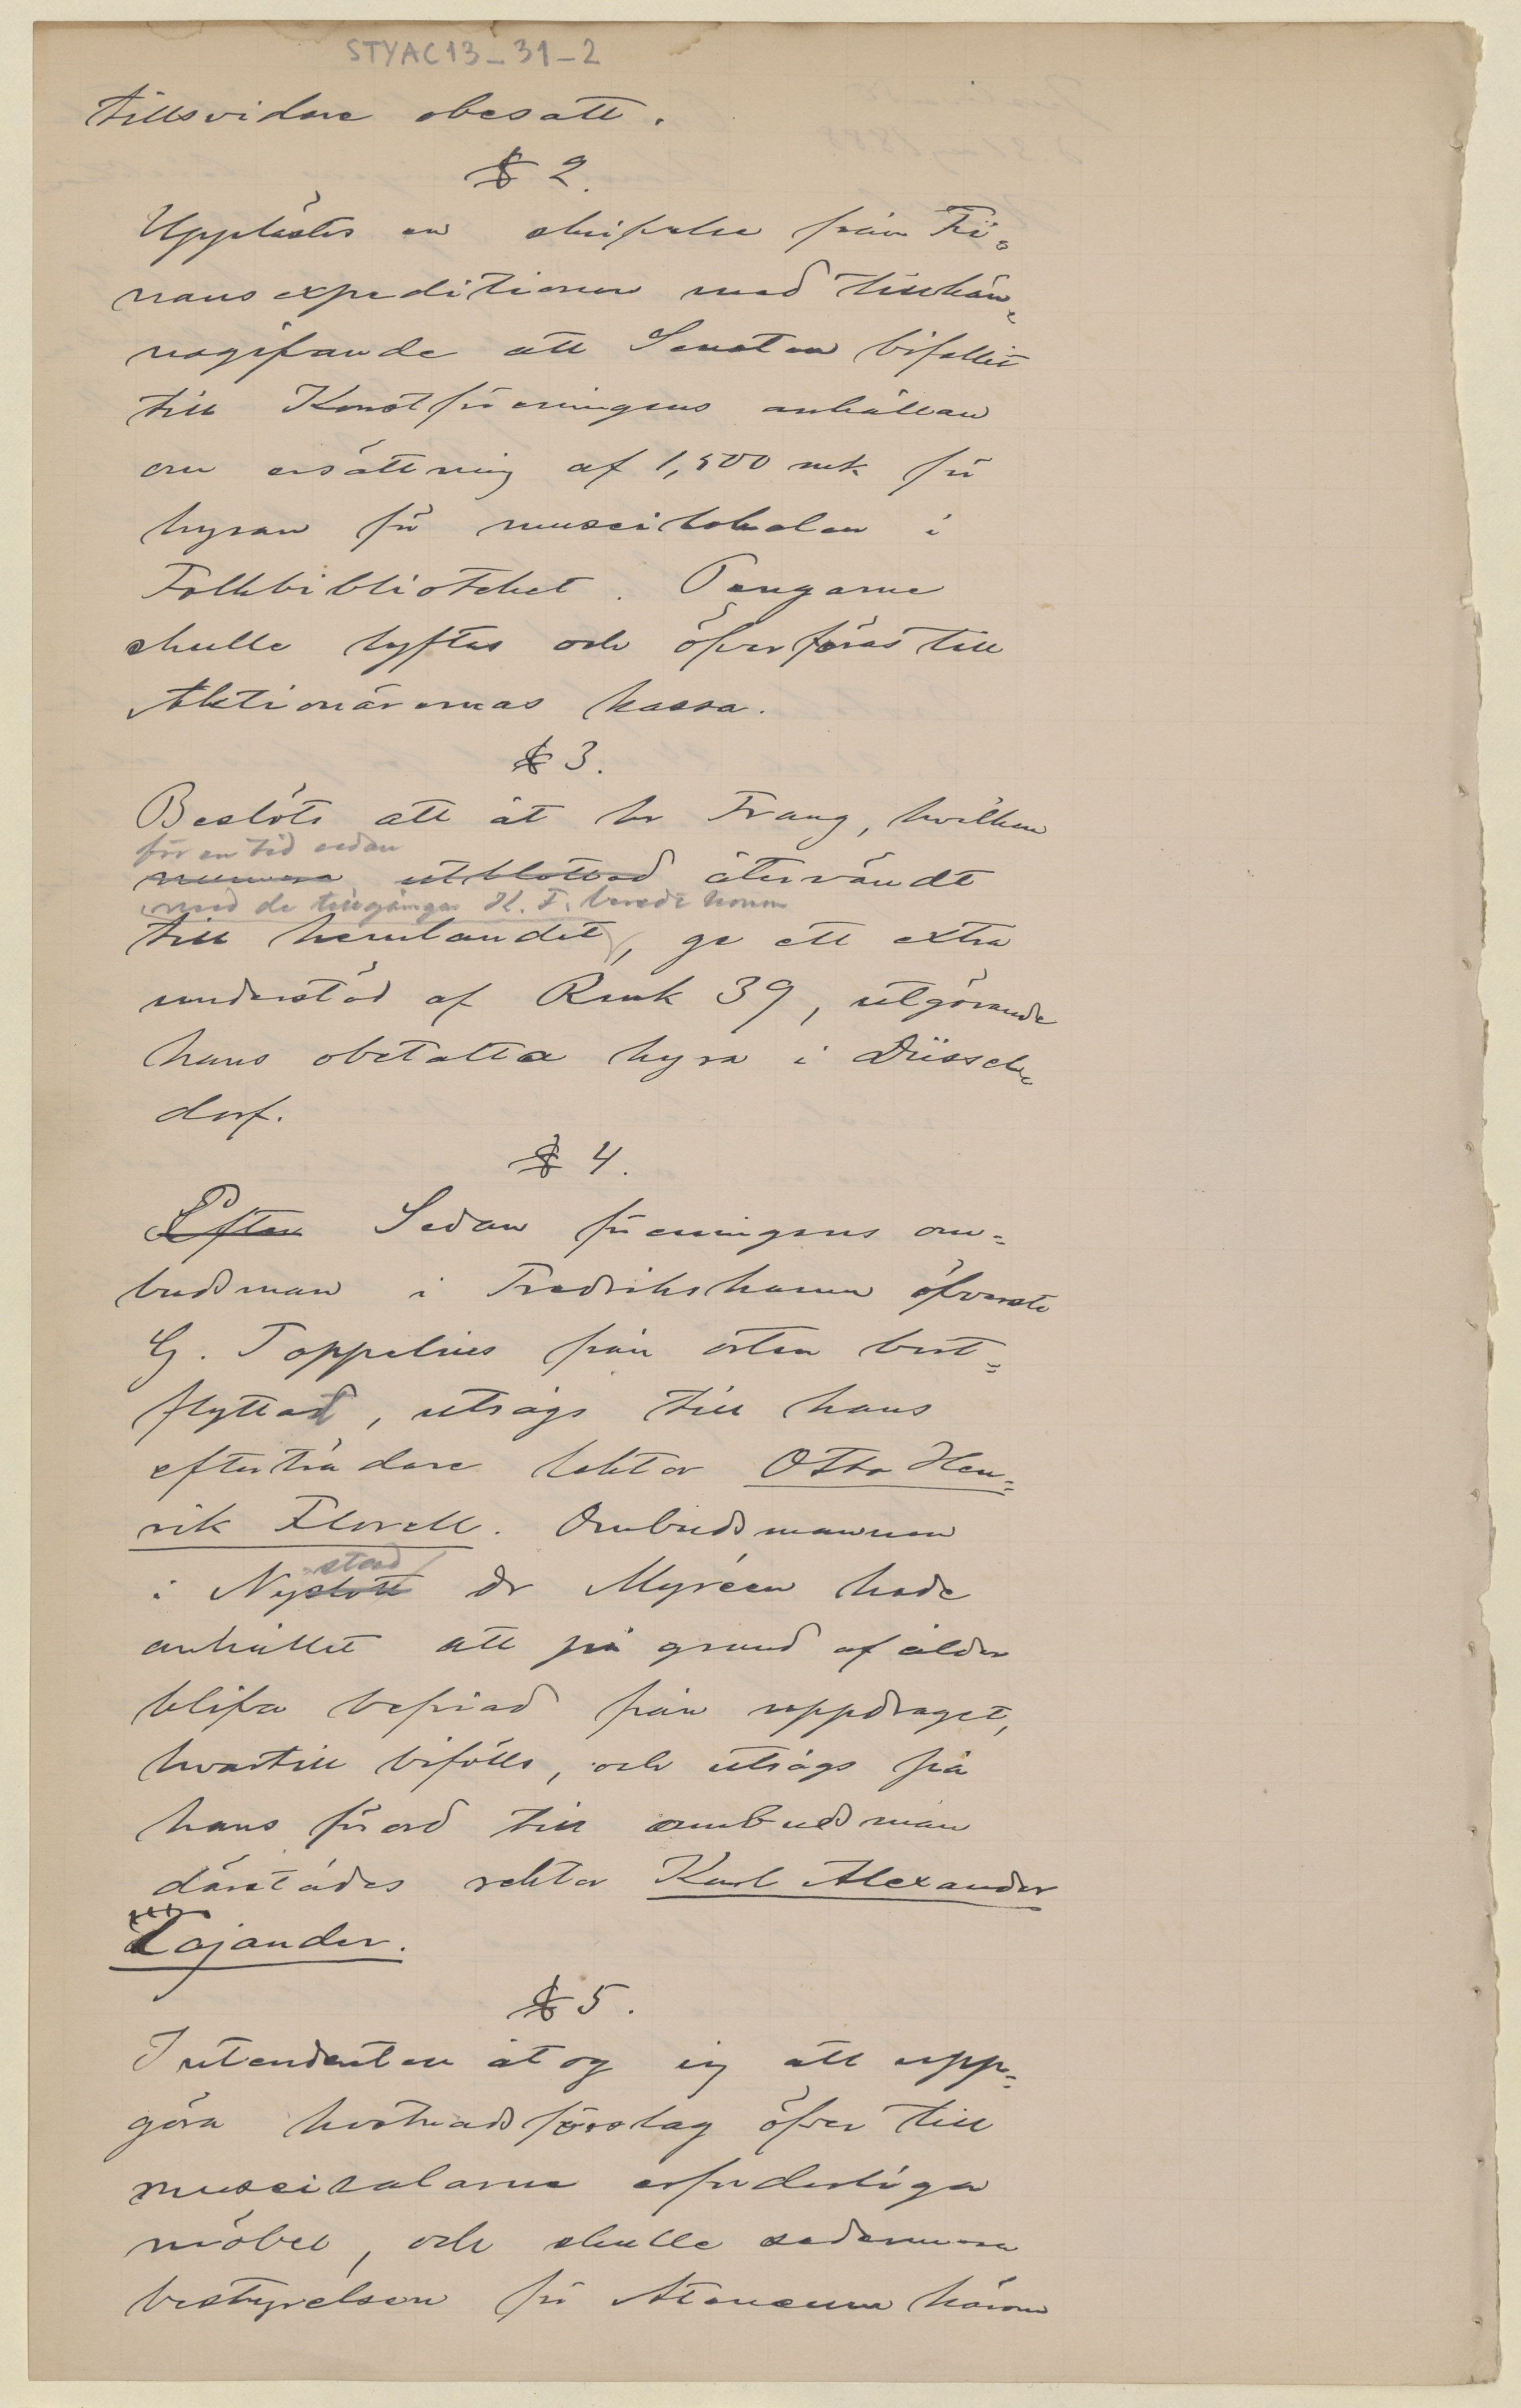 STYAC13_31_2
tillsvidare obesatt.
§ 2.
Upplästes en skrifvelse från Fi=
nansexpeditionen med tillkän=
nagifvande att Senaten bifallit
till Konstföreningens anhållan
om ersättning af 1,500 mk för
hyran för museilokalen i
Folkbiblioteket. Pengarne
skulle lyftas och öfverföras till
Aktionärernas kassa.
§ 3.
Beslöts att åt hr Frang, hvilken
för en tid sedan
numera utblottad återvändt
med de tillgångar K. F. beredt honom
till hemlandet, ge ett extra
understöd af Rmk 39, utgörande
hans obetalta hyra i Düssel=
dorf.
§ 4.
Efter Sedan föreningens om=
budsman i Fredrikshamn öfverste
G. Toppelius från orten bort=
flyttat, utsågs till hans
efterträdare lektor Otto Hen=
rik Florell. Ombudsmannen
stad
i Nyslott dr Myréen hade
anhållit att på grund af ålder
blifva befriad från uppdraget,
hvartill bifölls, och utsågs på
hans förord till ombudsman
därstädes rektor Karl Alexander
Cajander.
§ 5.
Intendenten åtog sig att upp=
göra kostnadsförslag öfver till
museisalarne erforderliga
möbel, och skulle sedermera
bestyrelsen för Ateneum härom